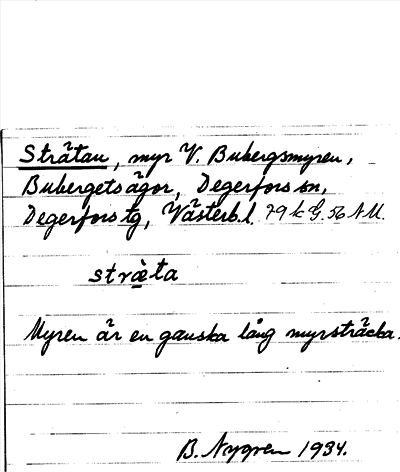 Strätan, myr V. Bubergsmyren,
Bubergets ägor, Degerfors sn,
Degerfors tg, Västerb.l. 79 k G. 56 N U.
stræ̀ta
Myren är en ganska lång myrsträcka.
B. Nygren 1934.